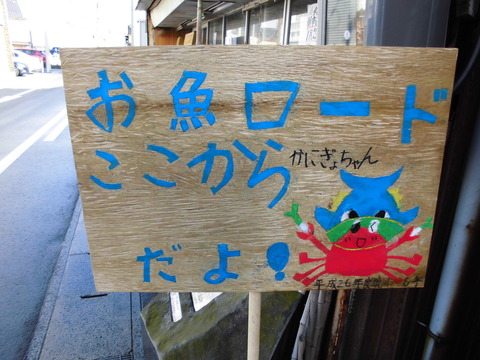 お魚ロード
ここから
かにぎょちゃん
だよ!
平成26年度
6年